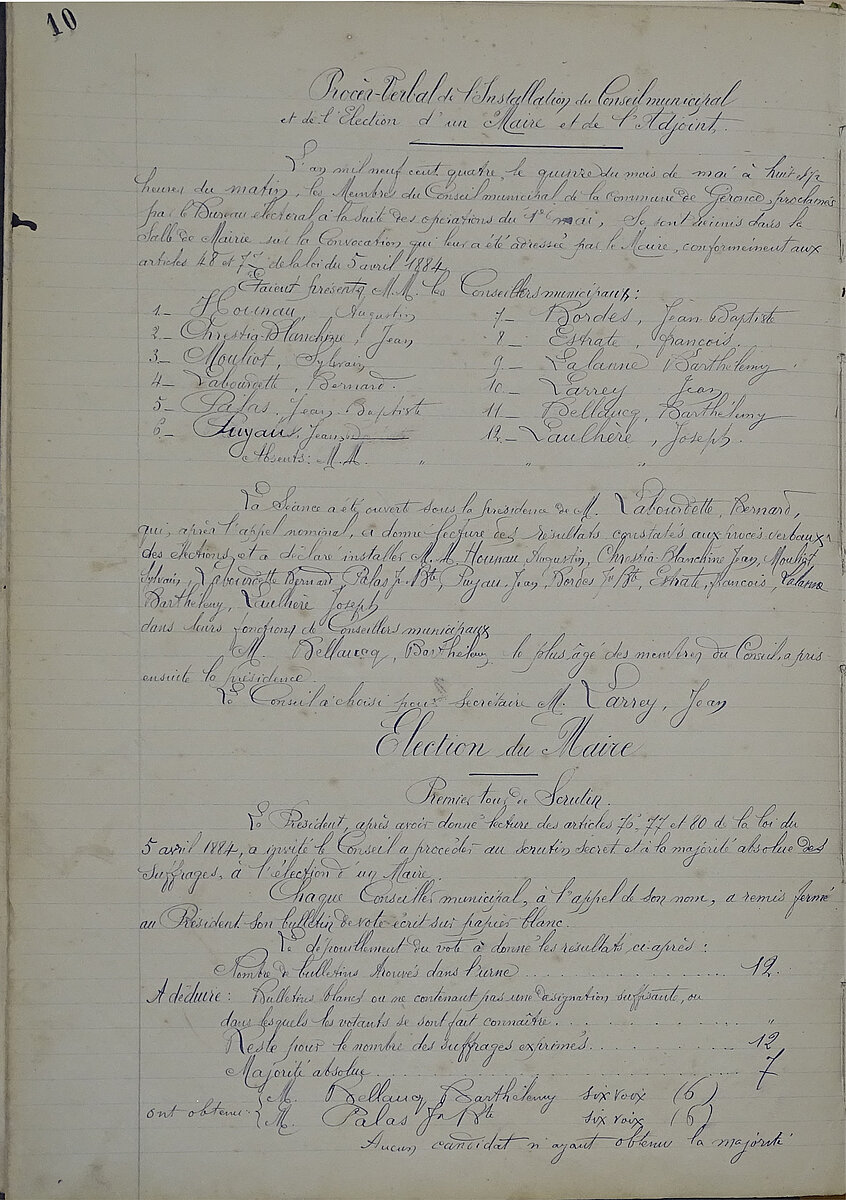 10
Procès-Verbal de l'Installation du Conseil municipal
et de l'Election d'un Maire et de l'Adjoint.
L'an mil neuf cent quatre, le quinze du mois de mai à huit
heures du matin, les Membres du Conseil municipal de la commune de proclamés
par le Bureau électoral à la suite des opérations du 1er mai, se sont réunis dans la
Salle de Mairie sur la Convocation qui leur a été adressée par le Maire, conformément aux
articles 48 et 77 de la loi du 5 avril 1884.
Etaient présents M.M. les Conseillers municipaux:
1_ Hounau, Augustin
2_ Chrestia-Blanchine, Jean
3_ Mouliot, Sylvain
4_ Labourdette, Bernard.
5_ Palas, Jean Baptiste
6_ Puyau, Jean
7_ Bordes, Jean-Baptiste
8_ Estrate, François.
9_ Lalanne Barthélemy
10_ Larrey Jean
11_ Bellaucq, Barthélemy
12_ Laulhère, Joseph.
Absents: M.M. " " "
La Séance a été ouverte sous la présidence de M. Labourdette, Bernard,
qui, après l'appel nominal, a donné lecture des résultats constatés aux procès verbaux
des élections, et a déclaré installer M.M. Hounau Augustin, Chrestia Blanchine Jean, Mouliot
Sylvain, Labourdette Bernard, Palas Jn Bte, Puyau Jean, Bordes Jn Bte, Estrate, francois, Lalanne
Barthélemy, Laulhère Joseph
dans leurs fonctions de Conseillers municipaux
M. Bellaucq, Barthélemy, le plus âgé des membres du Conseil, a pris
ensuite la présidence.
Le Conseil a choisi pour Secrétaire M. Larrey, Jean
Election du Maire
Premier tour de Scrutin.
Le Président, après avoir donné lecture des articles 76, 77 et 80 de la loi du
5 avril 1884, a invité le Conseil à procéder au scrutin secret et à la majorité absolue des
suffrages, à l'élection d'un Maire.
Chaque Conseiller municipal, à l'appel de son nom, a remis fermé
au Président son bulletin de vote écrit sur papier blanc.
Le dépouillement du vote a donné les résultats ci-après:
Nombre de bulletins trouvés dans l'urne ........ 12.
A déduire: Bulletins blancs ou ne contenant pas une désignation suffisante, ou
dans lesquels les votants se sont fait connaître ........ "
Reste pour le nombre des suffrages exprimés ........ 12
Majorité absolue ........ 7
ont obtenu: { M. Bellaucq Barthélemy six voix (6)
{ M. Palas Jn Bte six voix (6)
Aucun candidat n'ayant obtenu la majorité